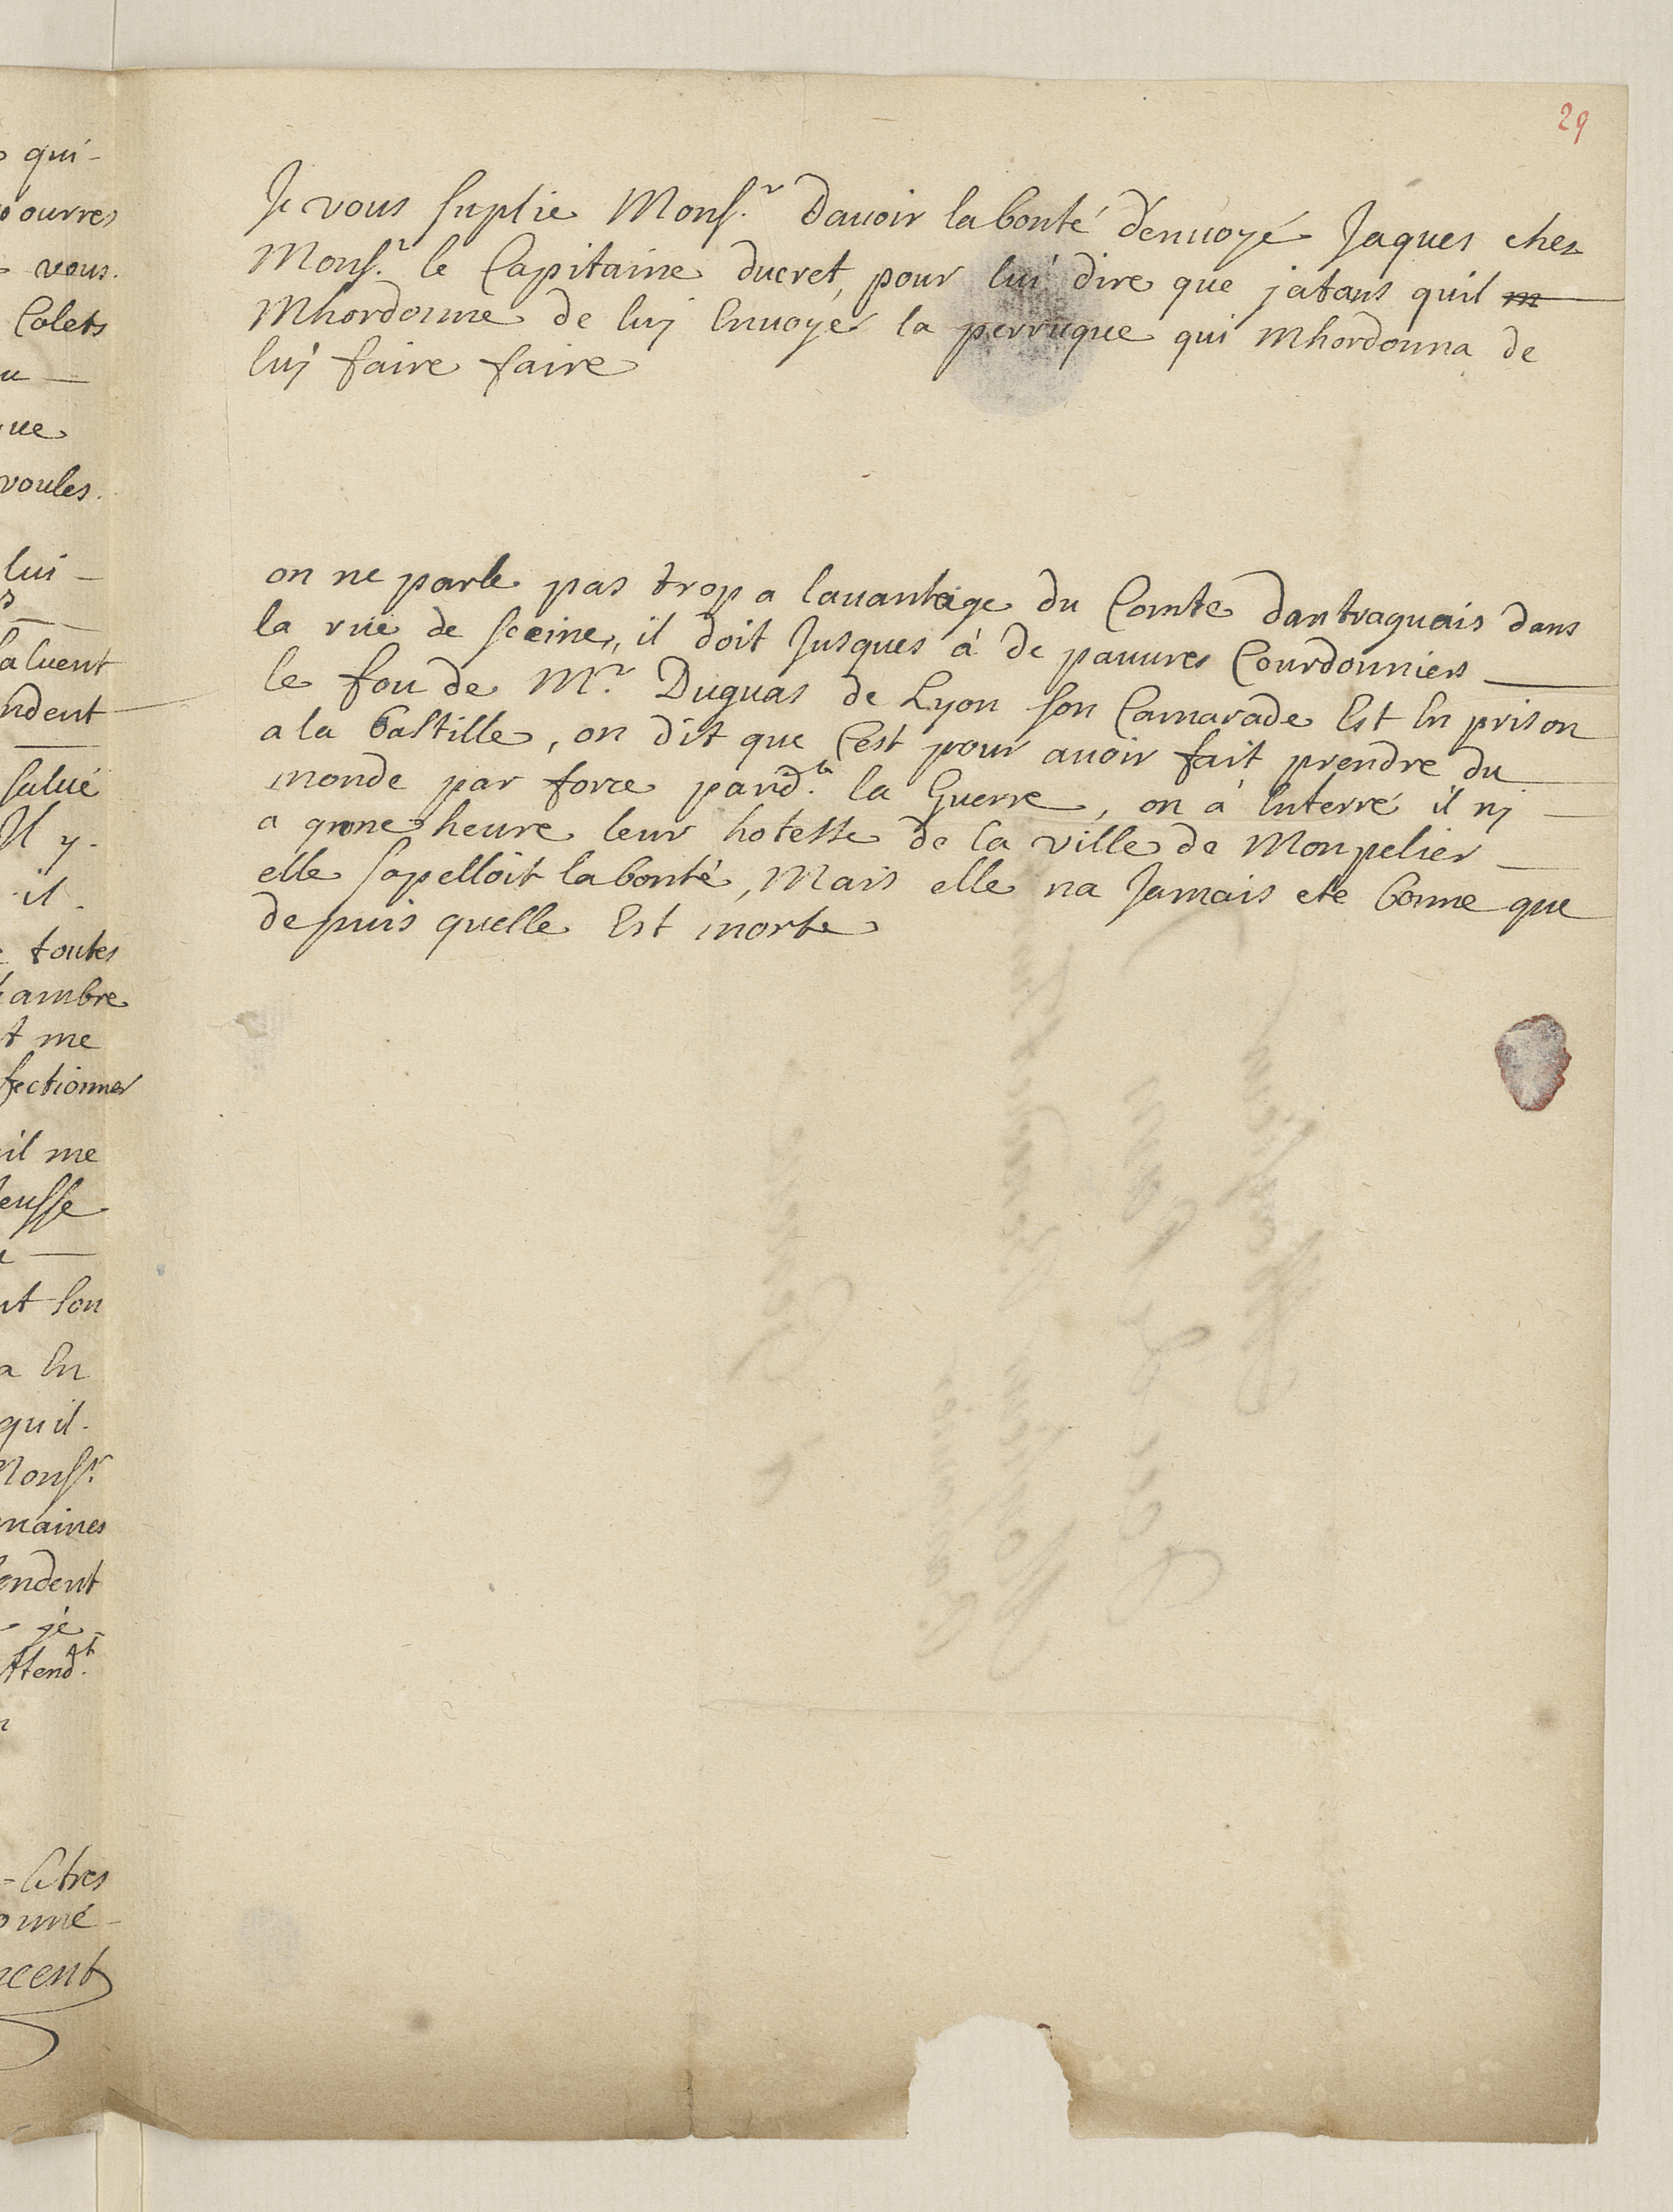 29
qui-
ourres
vous.
Colets
ue
voules.
lui -
saluent
ndent
salué
Il y -
il .
toutes
ambre
t me
fectionner
il me
eusse
nt son
a En
quil -
Monsr.
maines
endent
je -
Attendt.
Je vous suplie Monsr. davoir labonté dénuoyé Jaques chez
Monsr. le Capitaine ducret, pour lui dire que jatans quil m
Mhordonne de luy Enuoyer la perruque qui mhordonna de
luy faire faire
on ne parle pas trop a lauantage du Comte dantraguais dans
la rüe de sceine, il doit Jusques à de pauures Courdonniers
le fou de Mr. Duguas de Lyon son Camarade Est En prison
a la bastille, on dit que Cest pour auoir fait prendre du
monde par force pand.t la Guerre, on à Enterré il nj
a qune heure leur hotesse de la ville de Monpelier
elle sapelloit labonté, Mais elle na Jamais eté bonne que
depuis quelle Est morte